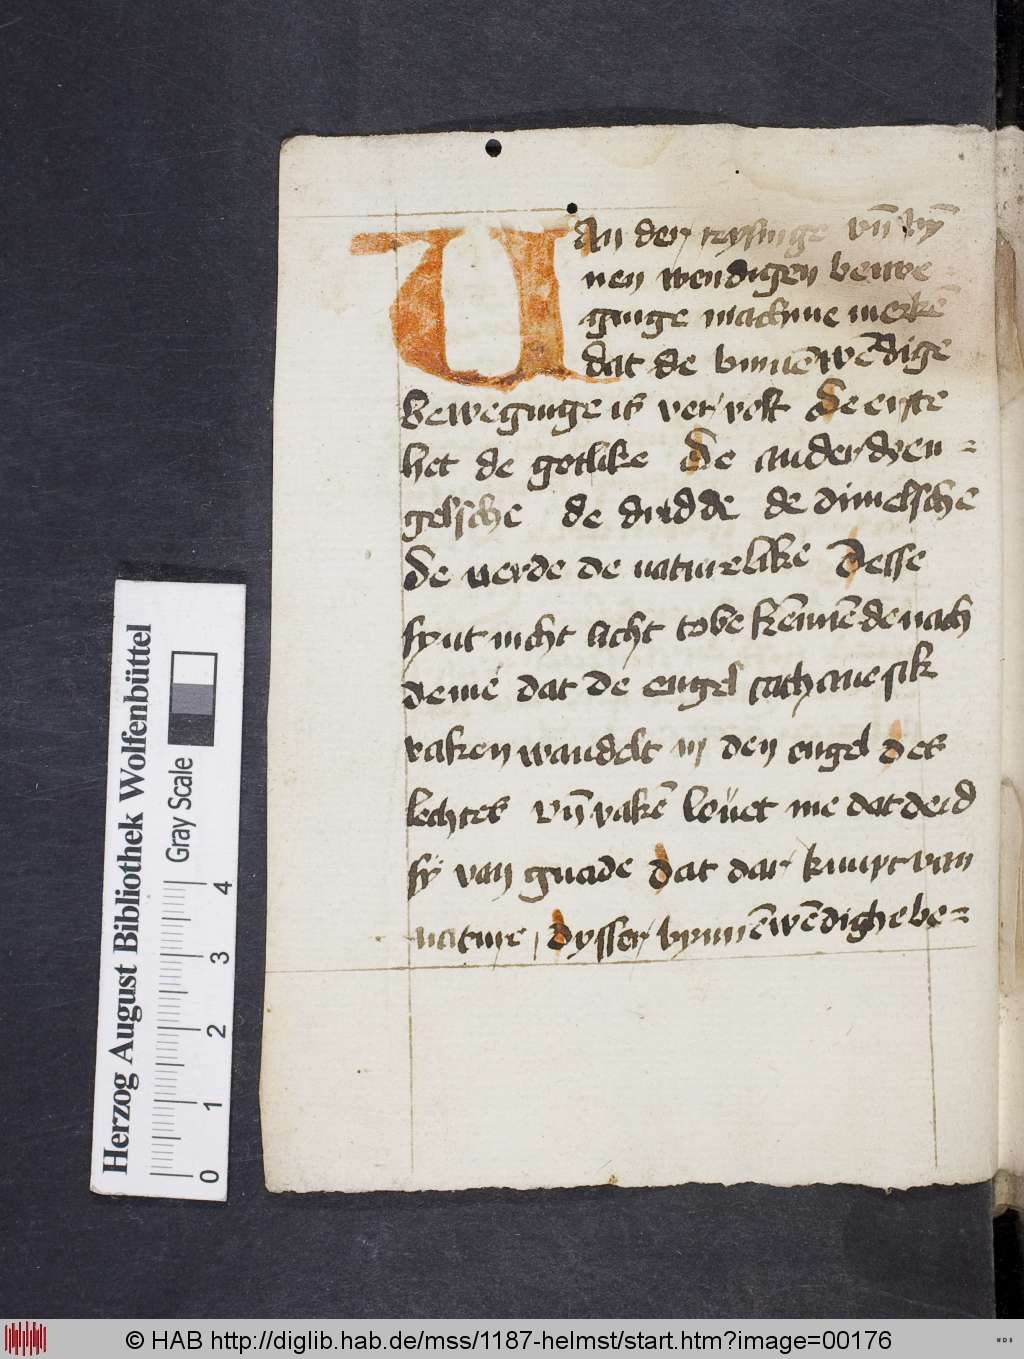 VAn der rysinge vn̄ by
nen wendigen bewe
ginge machme merkē
dat de bynnēwēdige
beweginge is verrolt De erste
het de gotlike De ander dyen =
gelsche de drudde de diuuelsche
De verde de naturelike Desse
synt nicht licht to be kēnnēde nach
deme dat de engel sathane sik
vaken wandelt in den engel des
lechtes vn̄ vakē louet me dat det
sy van gnade dat dar kumpt van
nature / dysser bynnēwēdighe be =
Herzog August Bibliothek Wolfenbüttel
Gray Scale
0 1 2 3 4
© HAB http://diglib.hab.de/mss/1187-helmst/start.htm?image=00176